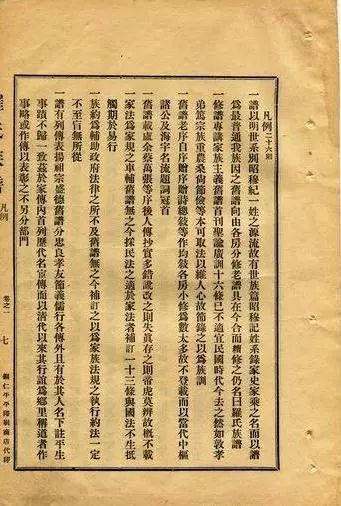 凡例二十六則
一譜以明世系別昭穆紀一姓之源流故有世族篇昭穆記姓系錄家史家乘之名而以譜
爲最普通我族因之舊譜向由各房分修老譜具在今合而修之仍名曰羅氏族譜
一修譜專講家族主義舊譜首刊聖諭廣訓十六條已不適宜民國時代今去之然如敦孝
弟篤宗族重農桑尚節儉等本可取法以維人心故節錄之以爲族訓
一舊譜老序自序贈序贈詩總敍等作均敍各房小修爲數太多故不登載而以當代中樞
諸公及海宇名流題詞冠首
一舊譜載盧余蔡萬張等序後人傳抄實多錯譌改之則失眞存之則虎莫辨故概不載
一家法爲家規之車輔舊譜無之今採民法之適於家法者補訂一十三條與國法不生抵
觸期於易行
一族約爲輔助政府法律之所不及舊譜無之今補訂之以爲家族法規之執行約法一定
不至盲無所從
一譜有列傳表揚祖宗盛德舊譜分忠良孝友節義儒行各傳外且有於其人名下註平生
事蹟不歸一致茲於家傳內首列歷代名宦傳而以清代以來其行誼爲鄉里稱道者作
事略或作傳以表彰之不另分部門
凡例
卷之一
七
銅仁平平印刷商店代印